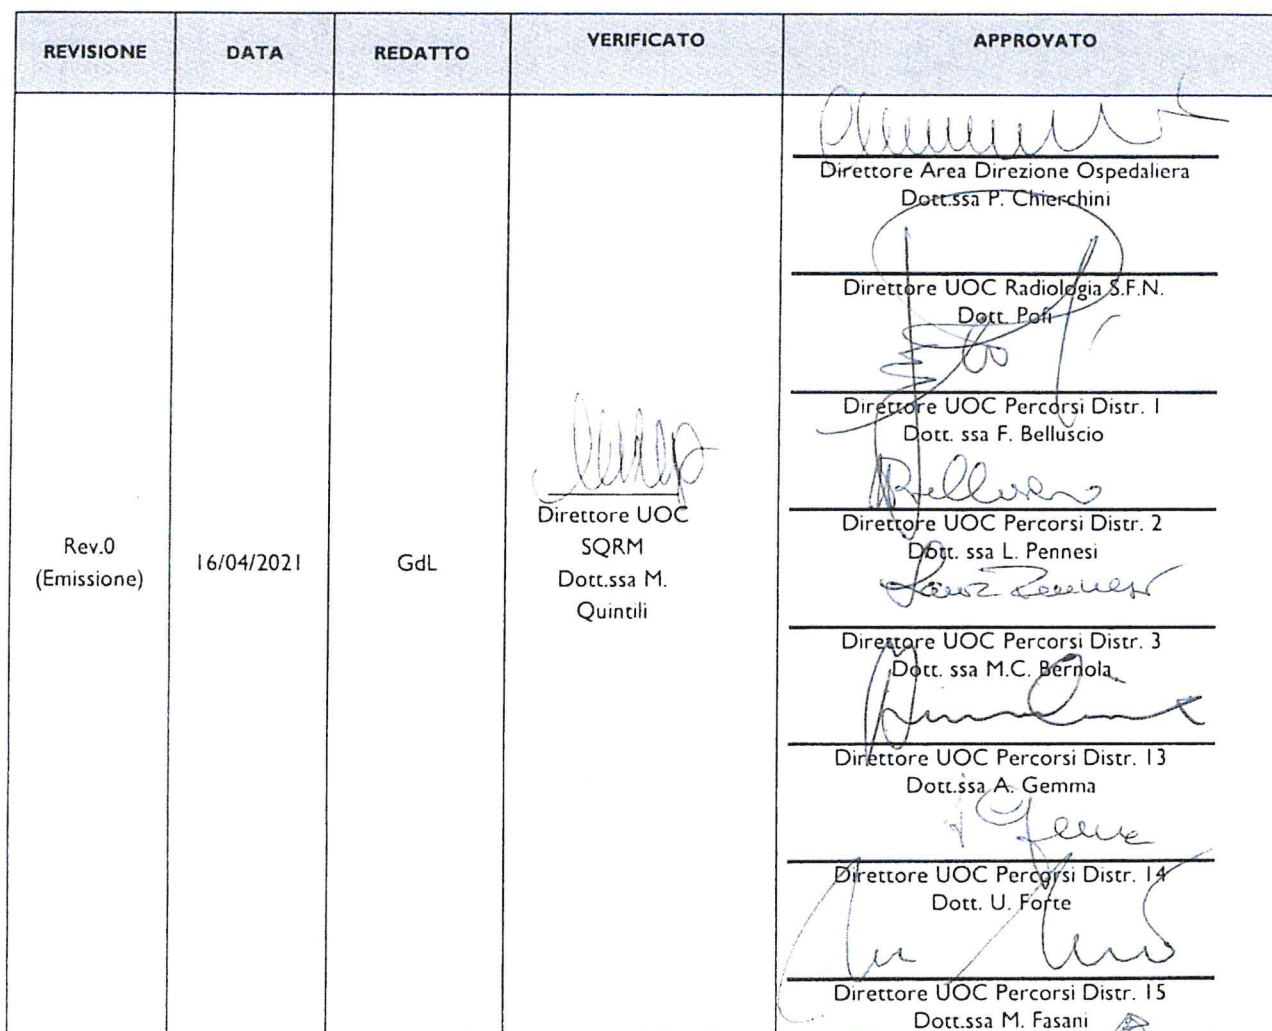 REVISIONE
DATA
REDATTO
VERIFICATO
APPROVATO
Rev.0
(Emissione)
16/04/2021
GdL
Direttore UOC
SQRM
Dott.ssa M.
Quintili
Direttore Area Direzione Ospedaliera
Dott.ssa P. Chierchini
Direttore UOC Radiologia S.F.N.
Dott. Pofi
Direttore UOC Percorsi Distr. 1
Dott. ssa F. Belluscio
Direttore UOC Percorsi Distr. 2
Dott. ssa L. Pennesi
Direttore UOC Percorsi Distr. 3
Dott. ssa M.C. Bernola
Direttore UOC Percorsi Distr. 13
Dott.ssa A. Gemma
Direttore UOC Percorsi Distr. 14
Dott. U. Forte
Direttore UOC Percorsi Distr. 15
Dott.ssa M. Fasani